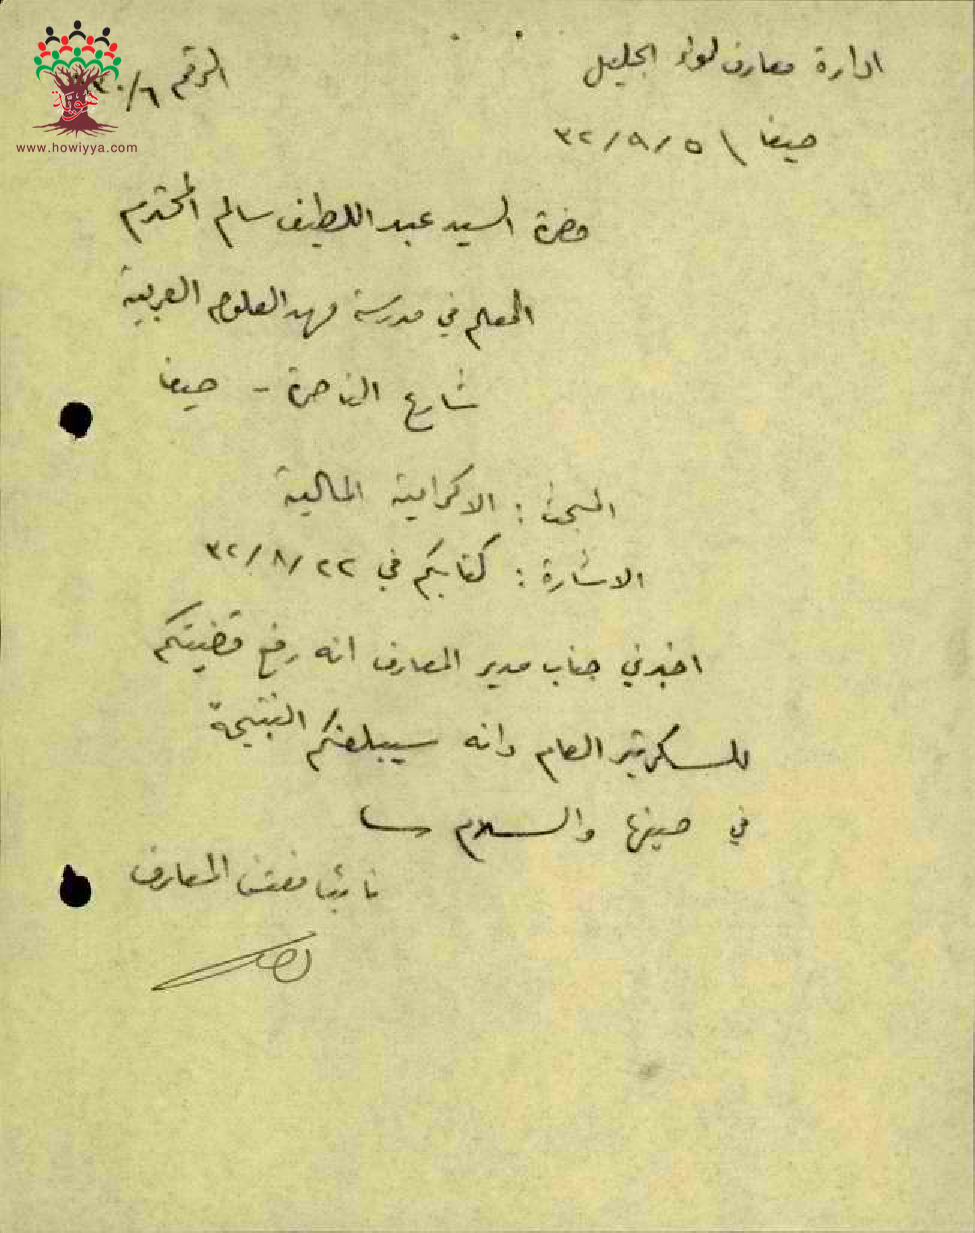 ادارة معارف لواء الجليل
الرقم ٦/
حيفا \ ٥/٩/٣٢
هوية
www.howiyya.com
حضرة السيد عبد اللطيف سالم المحترم
المعلم في مدرسة مهد العلوم العربية
شارع الناصرة - حيفا
المبحث : الاكرامية المالية
الاشارة : كتابكم في ٢٢/٨/٣٢
اخبرني جناب مدير المعارف انه رفع قضيتكم
للسكرتير العام وانه سيبلغكم النتيجة
في حينها والسلام
نائب مفتش المعارف